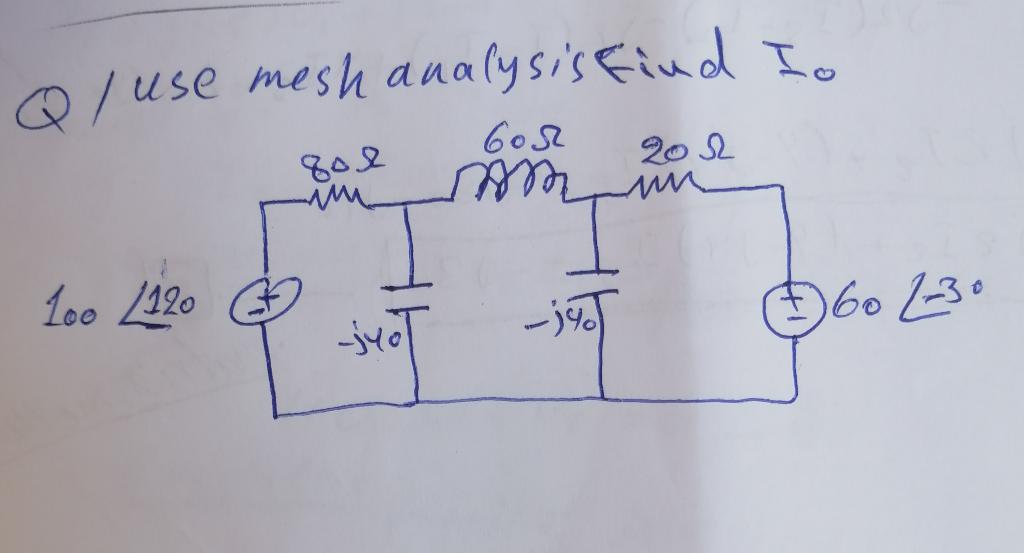 Q / use mesh analysis Find Io
80Ω 60Ω 20Ω
100 ∠120 + - -j40 -j40 + - 60 ∠-30